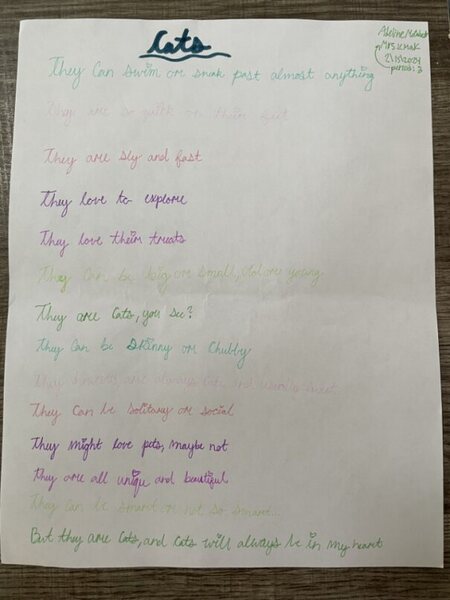 Cats
Adeline
Mrs. Khak
2/15/2024
period: 3
They Can swim or snak past almost anything
They are so quick on their feet
They are sly and fast
They love to explore
They love their treats
They Can be big or small, old or young
They are Cats, you see?
They can be skinny or Chubby
They are always and
They Can be solitary or social
They might love pets, maybe not
They are all unique and beautiful
They can be smart or not so smart...
But they are Cats, and Cats will always be in my heart